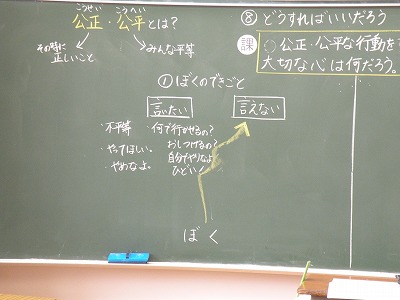 こうせい こうへい
公正・公平とは?
その時に
正しいこと
みんな平等
⑧どうすればいいだろう
課 ○公正・公平な行動をす
大切な心は何だろう。
①ぼくのできごと
言いたい
言えない
・不平等
・やってほしい。
・やめなよ。
・何で行かせるの?
おしつけるの?
自分でやりなよ
ひどい!
ぼく